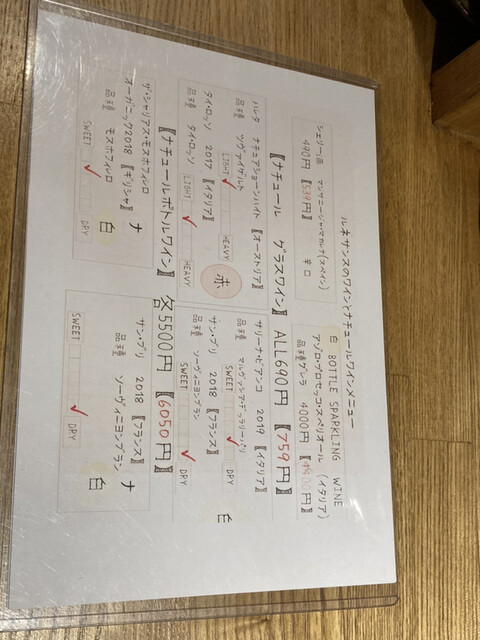 ルネサンスのワインとナチュールワインメニュー
シェリー酒 マンサニージャ・マカレナ(スペイン)
490円【539円】 辛口
白 BOTTLE SPARKLING WINE
アゾロ・プロセッコ・スペリオール(イタリア)
品種グレラ 4000円【4400円】
【ナチュール グラスワイン】ALL690円【759円】
ハレタ ナチュアショーンハイト【オーストリア】
品種 ツヴァイゲルト
LIGHT HEAVY
タイロッソ 2017【イタリア】
品種 タイロッソ
LIGHT HEAVY
赤
サリーナビアンコ 2019【イタリア】
品種 マルヴァジア・デッラリーパリ
SWEET DRY
サン・プリ 2018【フランス】
品種 ソーヴィニヨンブラン
SWEET DRY
白
【ナチュールボトルワイン】各5500円【6050円】
ザ・シャリアス・モスホフィルロ
オーガニック2018【ギリシャ】 ナ
品種 モスホフィルロ 白
SWEET DRY
サン・プリ 2018【フランス】
品種 ソーヴィニヨンブラン ナ
白
SWEET DRY